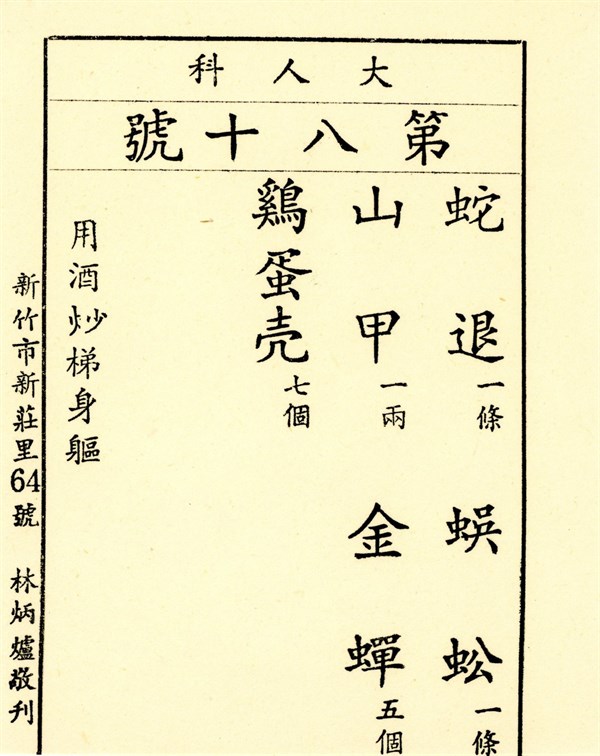 大人科
第八十號
蛇退一條 蜈蚣一條
山甲一兩 金蟬五個
鷄蛋壳七個
用酒炒梯身軀
新竹市新莊里64號 林炳爐敬刊